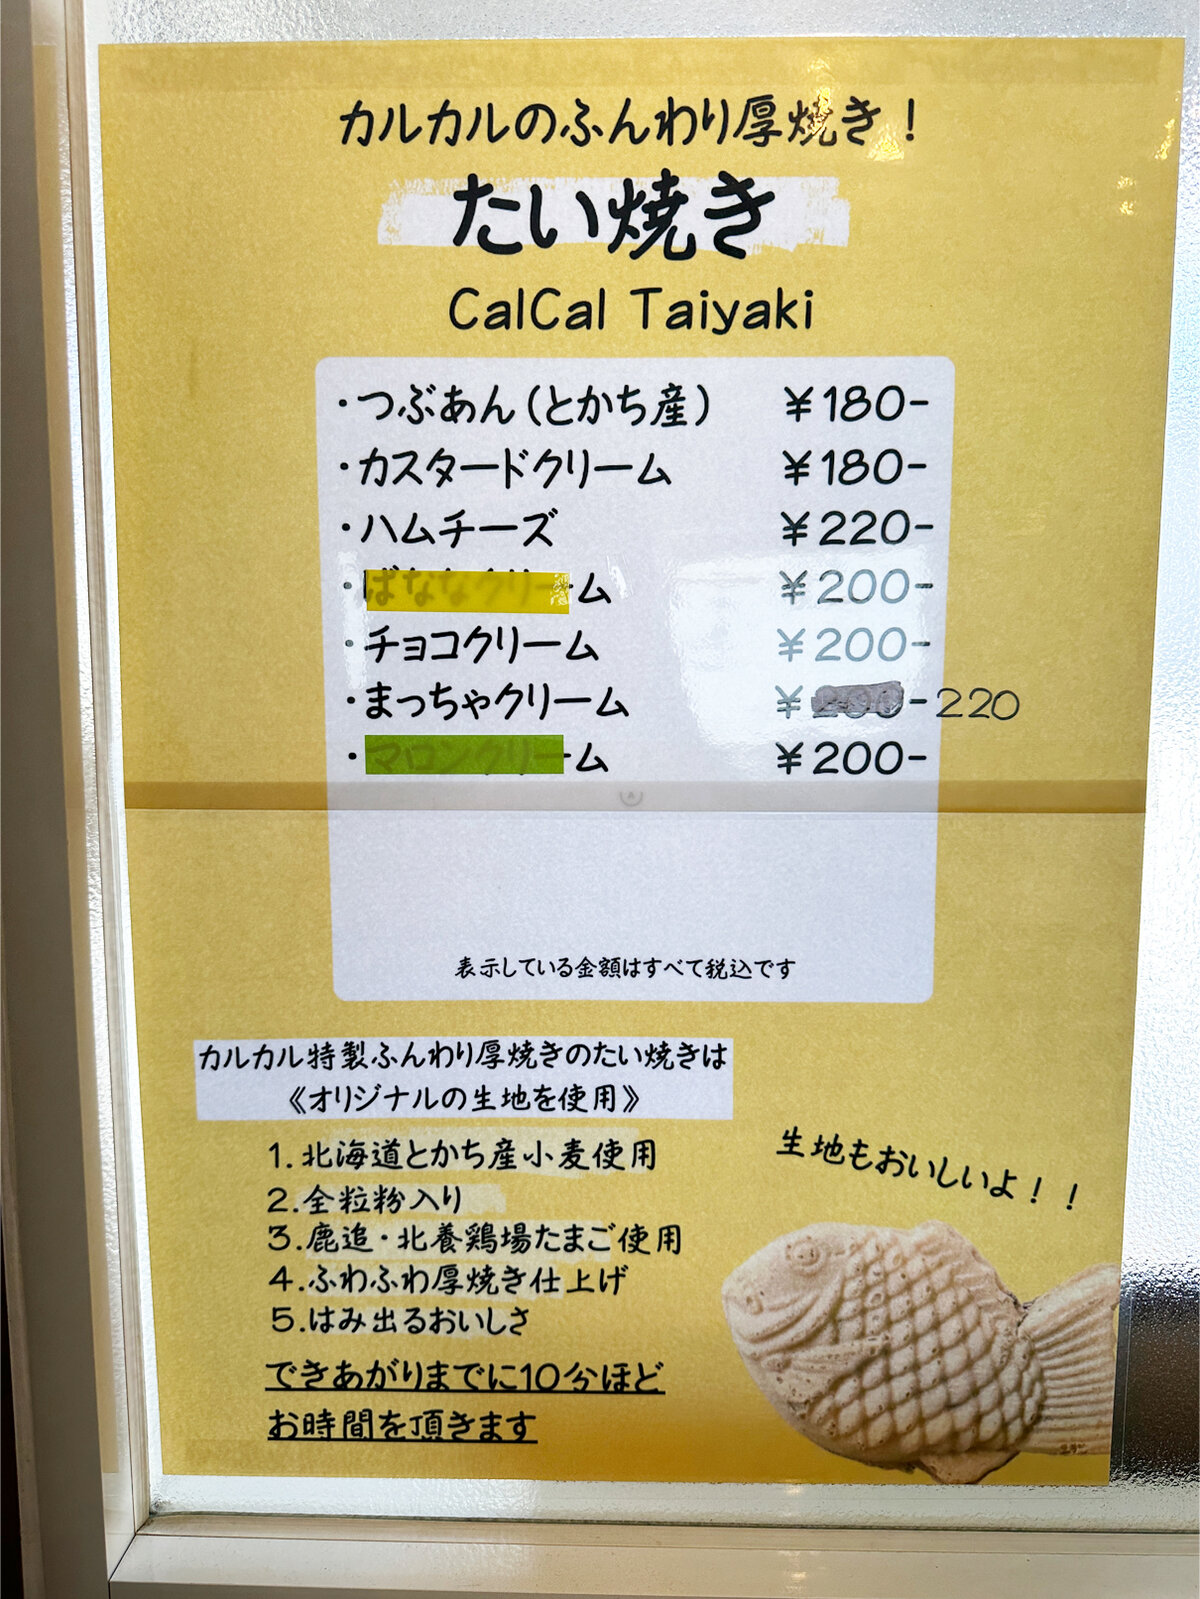 カルカルのふんわり厚焼き！
たい焼き
CalCal Taiyaki
・つぶあん(とかち産) ￥180-
・カスタードクリーム ￥180-
・ハムチーズ ￥220-
・ばななクリーム ￥200-
・チョコクリーム ￥200-
・まっちゃクリーム ￥200-220
・マロンクリーム ￥200-
表示している金額はすべて税込です
カルカル特製ふんわり厚焼きのたい焼きは
《オリジナルの生地を使用》
1.北海道とかち産小麦使用
2.全粒粉入り
3.鹿追・北養鶏場たまご使用
4.ふわふわ厚焼き仕上げ
5.はみ出るおいしさ
できあがりまでに10分ほど
お時間を頂きます
生地もおいしいよ！！